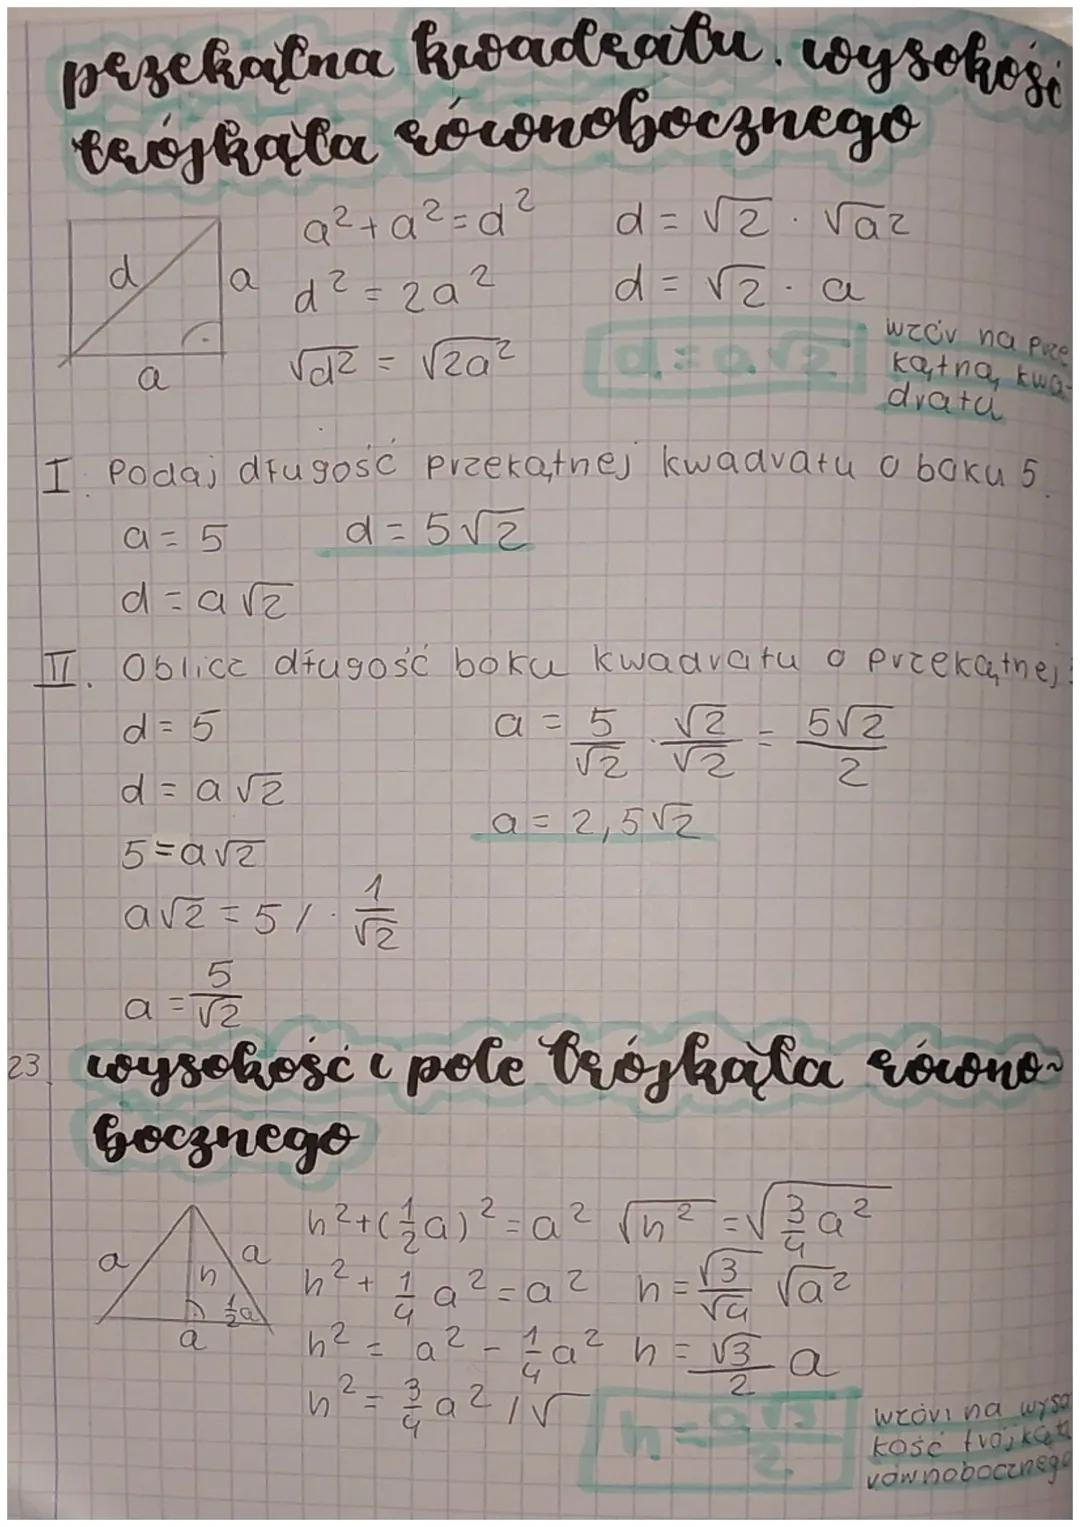 przekątna kwadratu. wysokość
trójkąta równobocznego
d
a
a
a² + a² = d²
d² = 2a²
√d² = √2a²
d = √2 · √a²
d = √2 · a
d = a√2
wzór na prze
kątną kwa-
dratu
I. Podaj długość przekątnej kwadratu o boku 5.
a = 5
d = 5√2
d = a√2
II. Oblicz długość boku kwadratu o przekątnej
d = 5
d = a√2
5 = a√2
a√2 = 5 / · 1/√2
a = 5/√2
a = 5/√2 · √2/√2 = 5√2/2
a = 2,5√2
23 wysokość i pole trójkąta równo-
bocznego
a
a
h
½a
a
h² + (½a)² = a²
h² + ¼a² = a²
h² = a² - ¼a²
h² = ¾a² /√
√h² = √¾a²
h = √3/√4 √a²
h = √3/2 a
h = a√3/2
wzór na wyso
kość trójkąta
równobocznego